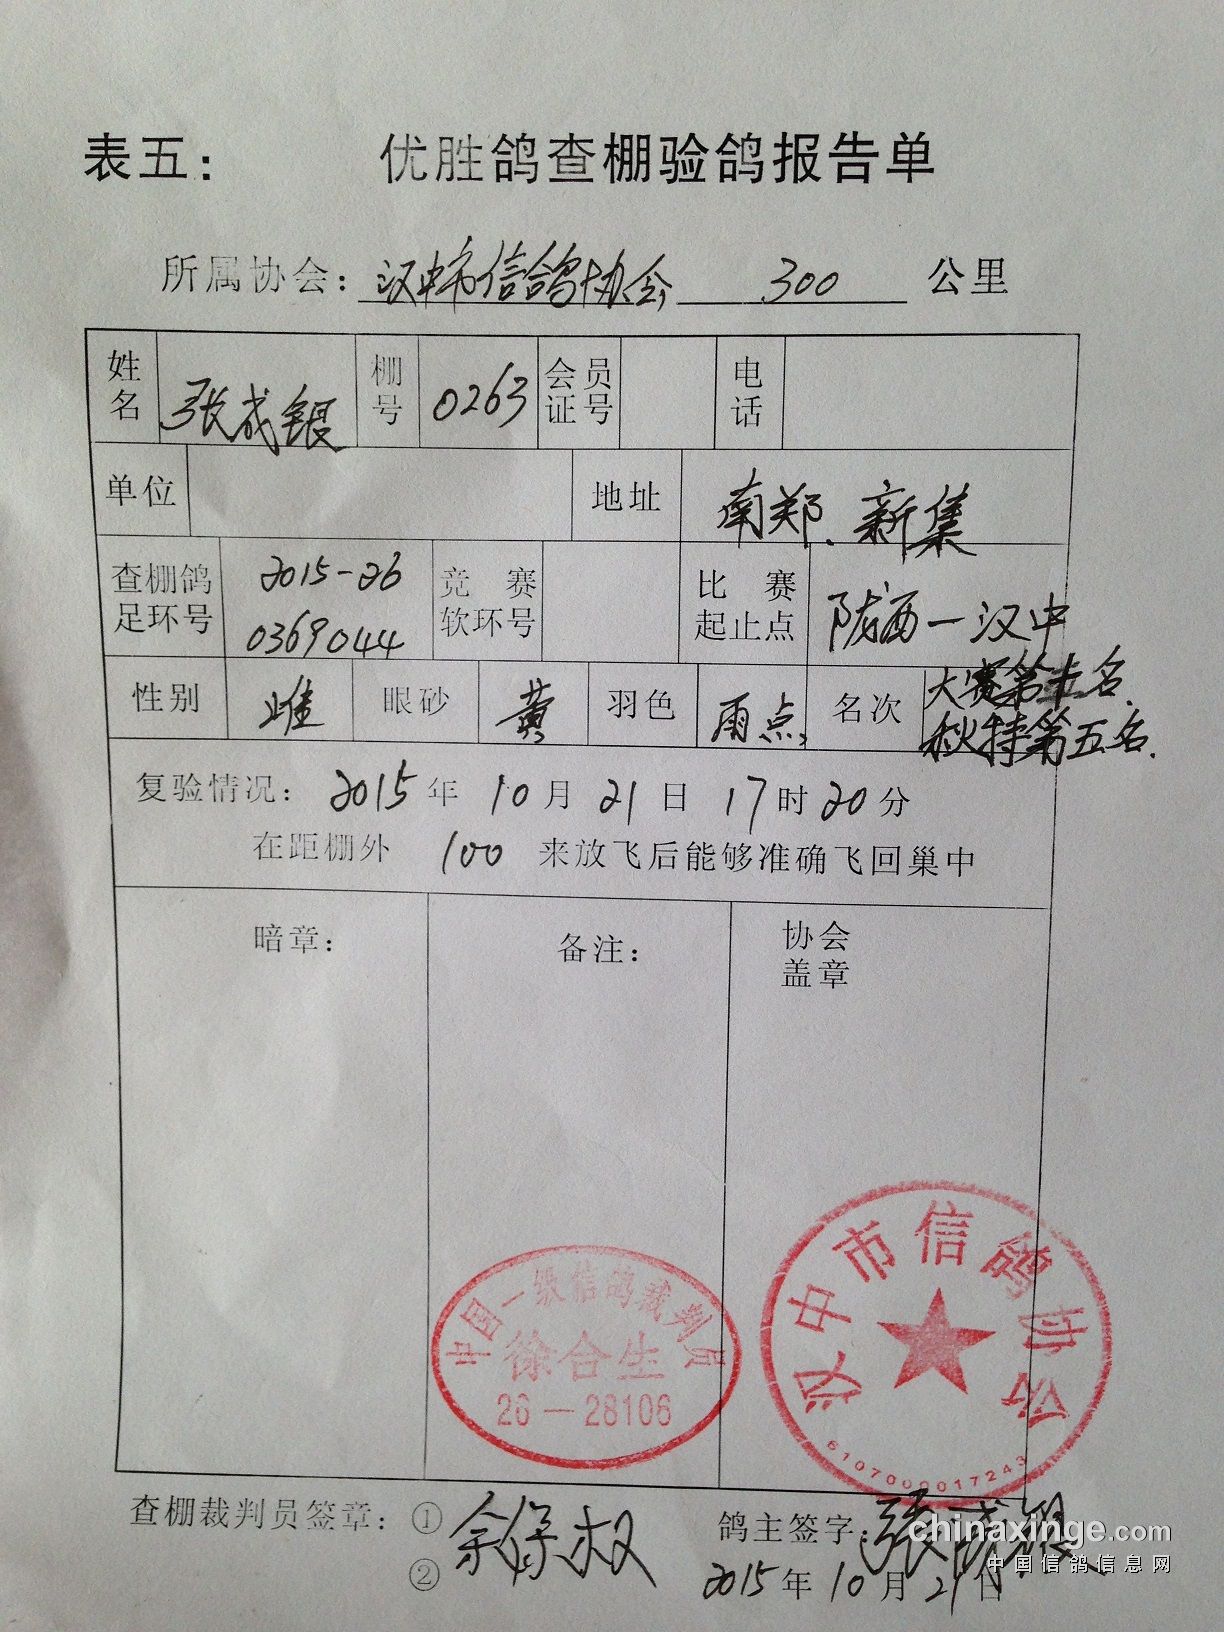 表五： 优胜鸽查棚验鸽报告单
所属协会：汉中市信鸽协会 300 公里
姓名 张成银 棚号 0263 会员证号 电话
单位 地址 南郑.新集
查棚鸽足环号 2015-26 0369044 竞赛软环号 比赛起止点 陇西一汉中
性别 雌 眼砂 黄 羽色 雨点 名次 大赛第五名. 秋特第五名.
复验情况：2015年10月21日17时20分
在距棚外 100 来放飞后能够准确飞回巢中
暗章： 备注： 协会盖章
中国一级信鸽裁判员
徐合生
26－28106
汉中市信鸽协会
6107000017243
查棚裁判员签章：① 余保权 鸽主签字：張成银
② 2015年10月21日
chinaxinge.com
中国信鸽信息网